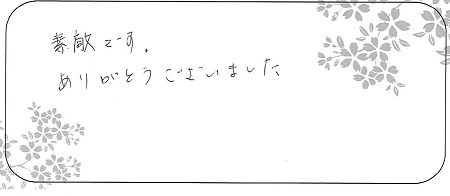 素敵です。
ありがとうございました